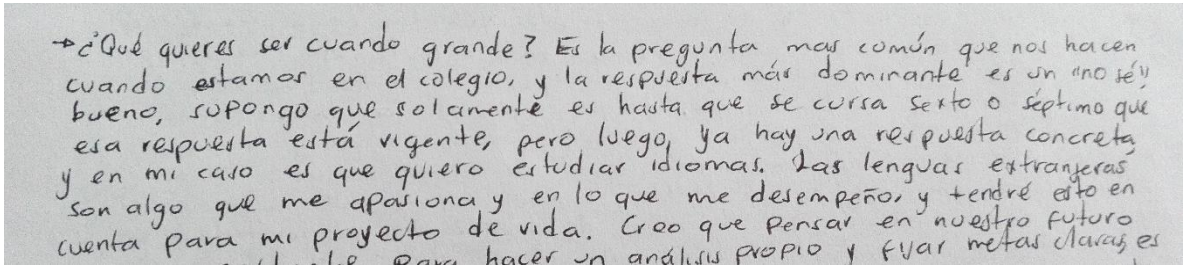 →¿Qué quieres ser cuando grande? Es la pregunta mas común que nos hacen
cuando estamos en el colegio, y la respuesta más dominante es un "no sé",
bueno, supongo que solamente es hasta que se cursa sexto o séptimo que
esa respuesta está vigente, pero luego, ya hay una respuesta concreta,
y en mi caso es que quiero estudiar idiomas. Las lenguas extranjeras
son algo que me apasiona y en lo que me desempeño, y tendré esto en
cuenta para mi proyecto de vida. Creo que pensar en nuestro futuro
para hacer un análisis propio y fijar metas claras, es